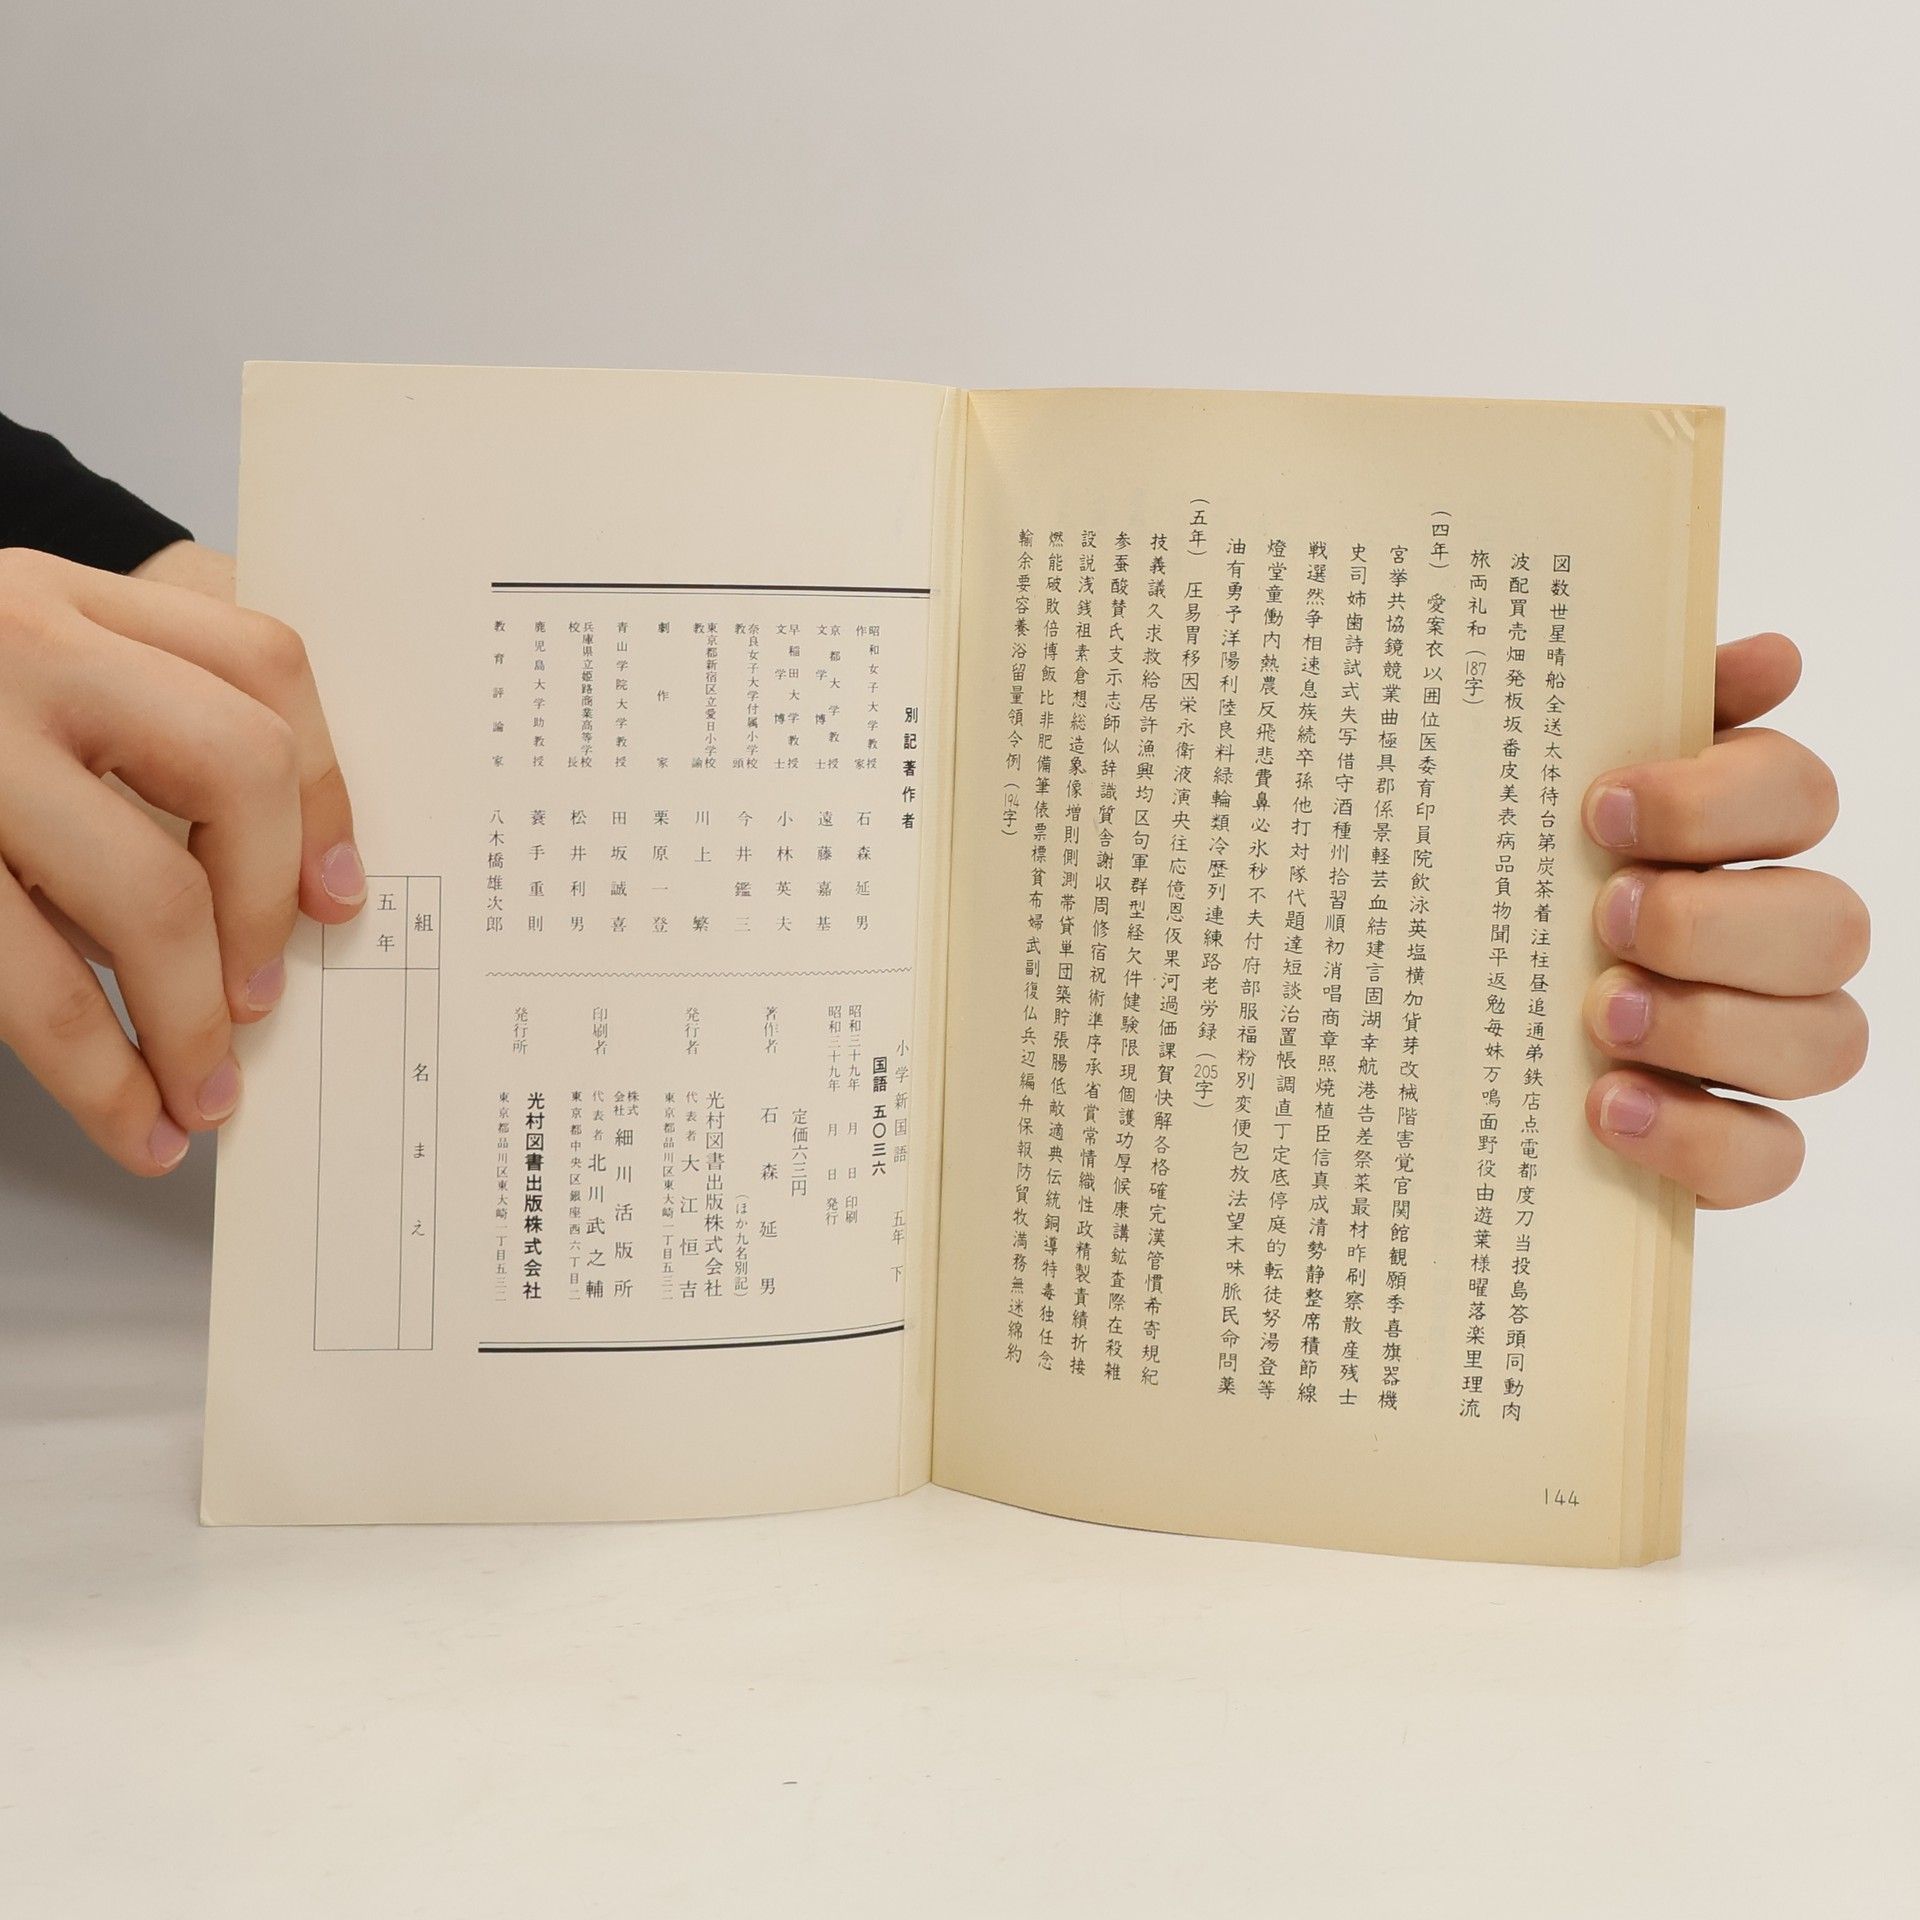 図数世星晴船全送太体待台第炭茶着注柱昼追通弟鉄店点電都度刀当投島答頭同動肉
波配買売畑発板坂番皮美表病品負物聞平返勉毎妹万鳴面野役由遊葉様曜落楽里理流
旅両礼和(187字)
(四年) 愛案衣以囲位医委育印員院飲泳英塩横加貨芽改械階害覚官関館観願季喜旗器機
宮挙共協鏡競業曲極具郡係景軽芸血結建言固湖幸航港告差祭菜最材昨刷察散産残士
史司姉歯詩試式失写借守酒種州拾習順初消唱商章照焼植臣信真成清勢静整席積節線
戦選然争相速息族続卒孫他打対隊代題達短談治置帳調直丁定底停庭的転徒努湯登等
燈堂童働内熱農反飛悲費鼻必氷秒不夫付府部服福粉別変便包放法望末味脈民命問薬
油有勇予洋陽利陸良料緑輪類冷歴列連練路老労録(205字)
(五年) 圧易胃移因栄永衛液演央往応憶恩仮果河過価課賀快解各格確完漢管慣希寄規紀
技義議久求救給居許漁興均区句軍群型経欠件健験限現個護功厚候康講鉱査際在殺雑
参蚕酸賛氏支示志師似辞識質舎謝収周修宿祝術準序承省賞常情織性政精製責績折接
設説浅銭祖素倉想総造象像増則側測帯貸単団築貯張腸低敵適典伝統銅導特毒独任念
燃能破敗倍博飯比非肥備筆俵票標貧布婦武副復仏兵辺編弁保報防貿牧満務無迷綿約
輸余要容養浴留量領令例(194字)
144
別記著作者
昭和女子大学教授
作家 石森延男
京都大学教授
文学博士 遠藤嘉基
早稲田大学教授
文学博士 小林英夫
奈良女子大学付属小学校
教頭 今井鑑三
東京都新宿区立愛日小学校
教諭 川上繁
劇作家 栗原一登
青山学院大学教授 田坂誠喜
兵庫県立姫路商業高等学校
校長 松井利男
鹿児島大学助教授 蓑手重則
教育評論家 八木橋雄次郎
小学新国語 五年 下
国語 五〇三六
昭和三十九年 月 日 印刷
昭和三十九年 月 日 発行
定価六三円
著作者 石森延男
(ほか九名別記)
発行者 光村図書出版株式会社
代表者 大江恒吉
東京都品川区東大崎一丁目五三二
印刷者 株式会社 細川活版所
代表者 北川武之輔
東京都中央区銀座西六丁目二
発行所 光村図書出版株式会社
東京都品川区東大崎一丁目五三二
組 名まえ
五年